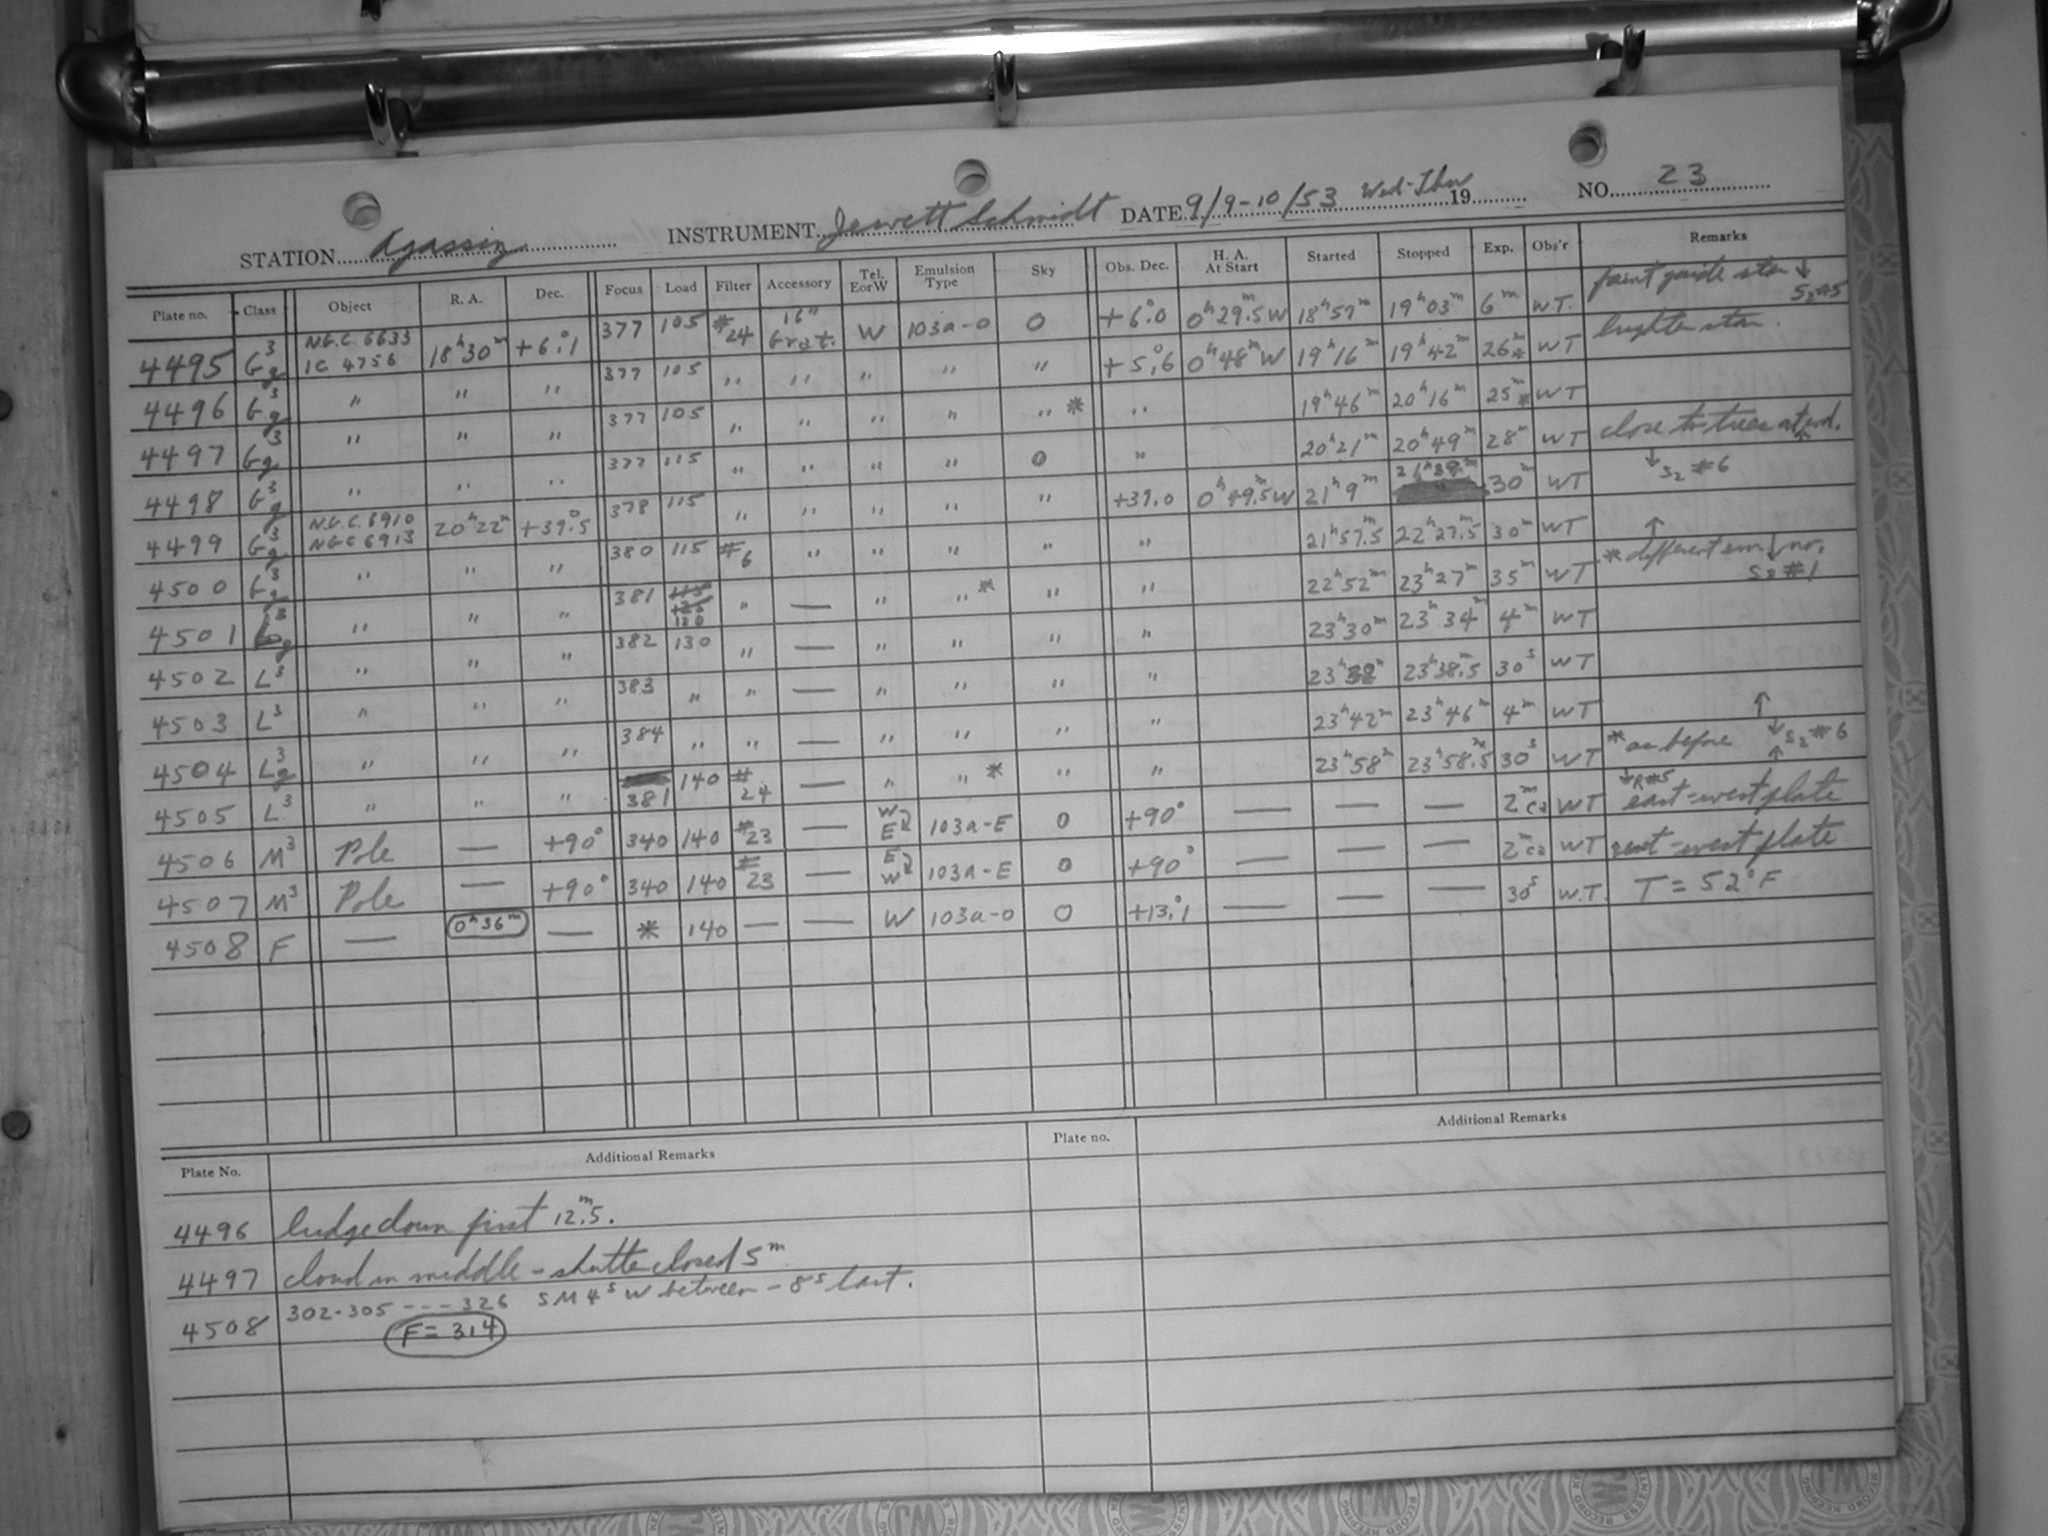 STATION Agassiz INSTRUMENT Jewett Schmidt DATE 9/9-10/53 Wed-Thu 19 NO. 23
Plate no. Class Object R. A. Dec. Focus Load Filter Accessory Tel. EorW Emulsion Type Sky Obs. Dec. H. A. At Start Started Stopped Exp. Obs'r Remarks
4495 G³g N.G.C. 6633 IC 4756 18ʰ30ᵐ +6°.1 377 105 #24 16" Grat. W 103a-O O +6°.0 0ʰ29ᵐ.5W 18ʰ57ᵐ 19ʰ03ᵐ 6ᵐ WT. faint guide star ↓ S₂#5
4496 G³g " " " 377 105 " " " " " +5°.6 0ʰ48ᵐW 19ʰ16ᵐ 19ʰ42ᵐ 26ᵐ* WT brighter star.
4497 G³g " " " 377 105 " " " " " * " 19ʰ46ᵐ 20ʰ16ᵐ 25ᵐ* WT
4498 G³g " " " 377 115 " " " " O " 20ʰ21ᵐ 20ʰ49ᵐ 28ᵐ WT close to trees at end. ↑
4499 G³g N.G.C. 6910 NGC 6913 20ʰ22ᵐ +39°.5 378 115 " " " " " +39.0 0ʰ49ᵐ.5W 21ʰ9ᵐ 21ʰ39ᵐ 30ᵐ WT ↓ S₂ #6
4500 G³g " " " 380 115 #6 " " " " " 21ʰ57ᵐ.5 22ʰ27ᵐ.5 30ᵐ WT ↑
4501 L³g " " " 381 115 125 130 " — " " * " " 22ʰ52ᵐ 23ʰ27ᵐ 35ᵐ WT * different em. no. ↓ S₂ #1
4502 L³ " " " 382 130 " — " " " " 23ʰ30ᵐ 23ʰ34ᵐ 4ᵐ WT
4503 L³ " " " 383 " " — " " " " 23ʰ38ᵐ 23ʰ38ᵐ.5 30ˢ WT
4504 L³g " " " 384 " " — " " " " 23ʰ42ᵐ 23ʰ46ᵐ 4ᵐ WT ↑
4505 L³ " " " 381 140 #24 — " " * " " 23ʰ58ᵐ 23ʰ58ᵐ.5 30ˢ WT * as before ↓ S₂ #6 ↑
4506 M³ Pole — +90° 340 140 #23 — W E 103a-E O +90° — — — 2ᵐ ca WT ↓ R#5 east-west plate
4507 M³ Pole — +90° 340 140 #23 — E W 103a-E O +90° — — — 2ᵐ ca WT east-west plate
4508 F — 0ʰ36ᵐ — * 140 — — W 103a-O O +13°.1 — — — 30ˢ W.T. T = 52°F
Plate No. Additional Remarks Plate no. Additional Remarks
4496 bridge down first 12ᵐ.5.
4497 cloud in middle - shutter closed 5ᵐ
4508 302-305 --- 326 5M 4ˢ W between - 8ˢ last.
F = 314